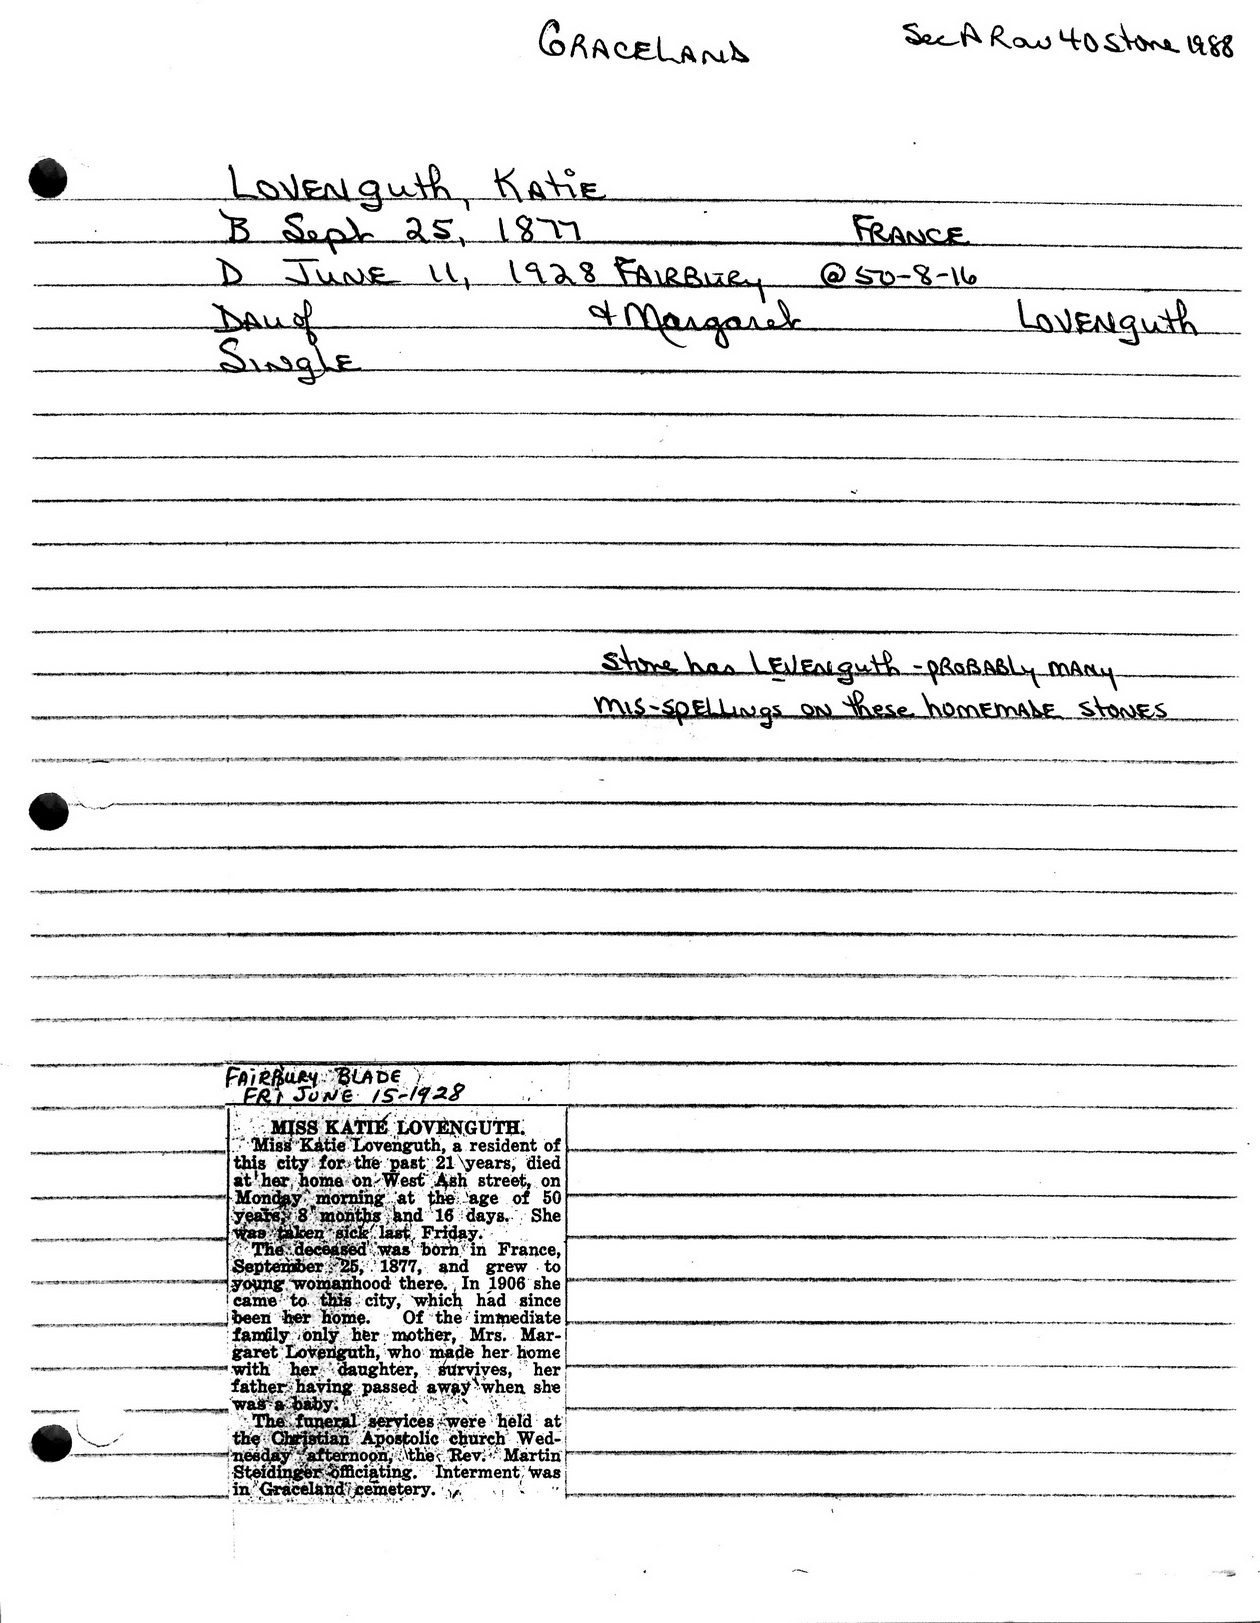 GRACELAND
Sec A Row 40 Stone 1988
LOVENguth, KAtiE
B Sept 25, 1877 FRANCE
D JUNE 11, 1928 FAIRBURy @50-8-16
DAu of & Margaret LOVENguth
SINgLE
Stone has LEVENguth - pROBABLy MANy
MIS-SpELLINgs ON these hOMEMADE STONES
FAIRBuRy BLADE
FRI JUNE 15-1928
MISS KATIE LOVENGUTH.
Miss Katie Lovenguth, a resident of
this city for the past 21 years, died
at her home on West Ash street, on
Monday morning at the age of 50
years, 8 months and 16 days. She
was taken sick last Friday.
The deceased was born in France,
September 25, 1877, and grew to
young womanhood there. In 1906 she
came to this city, which had since
been her home. Of the immediate
family only her mother, Mrs. Mar-
garet Lovenguth, who made her home
with her daughter, survives, her
father having passed away when she
was a baby.
The funeral services were held at
the Christian Apostolic church Wed-
nesday afternoon, the Rev. Martin
Steidinger officiating. Interment was
in Graceland cemetery.